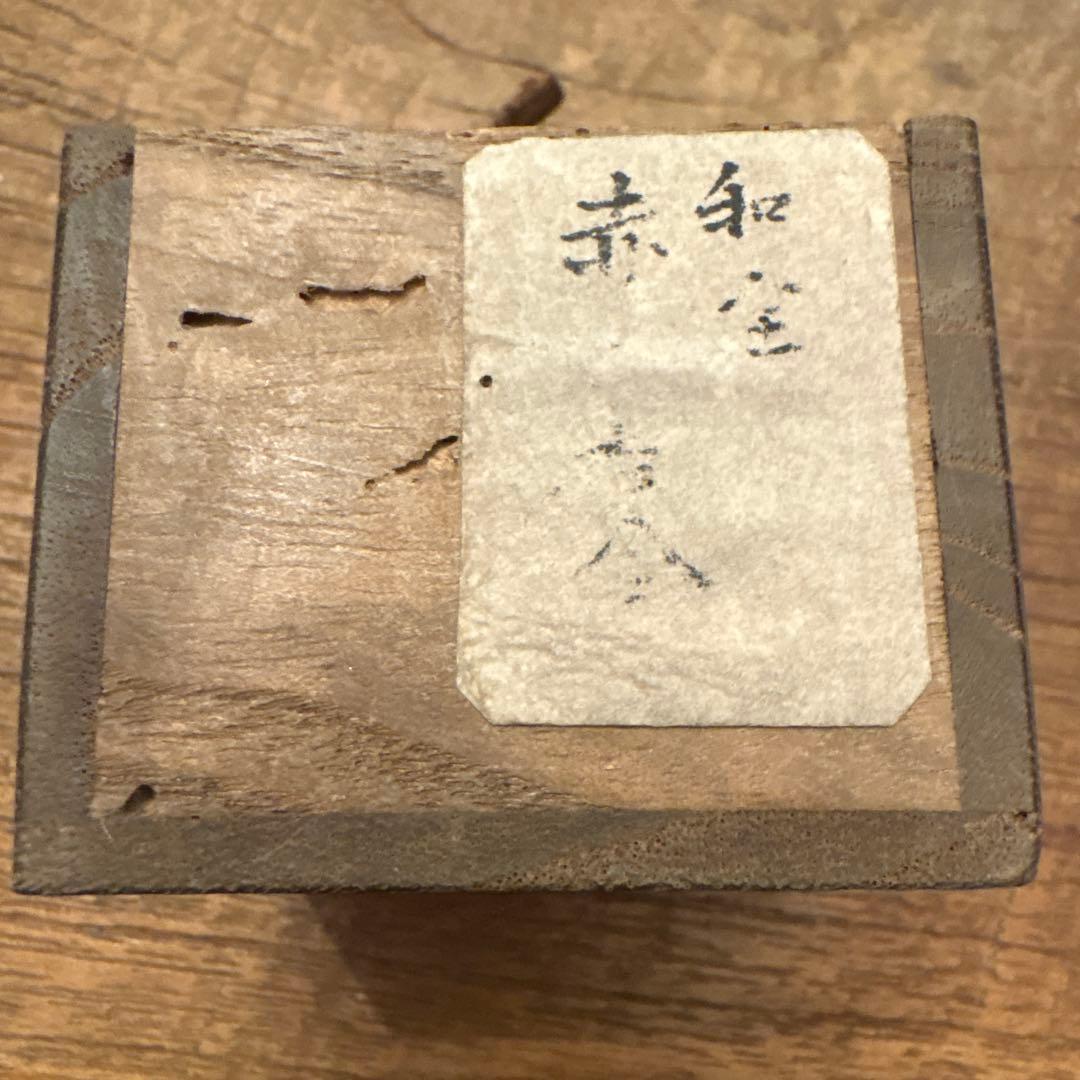 和全
赤 香合